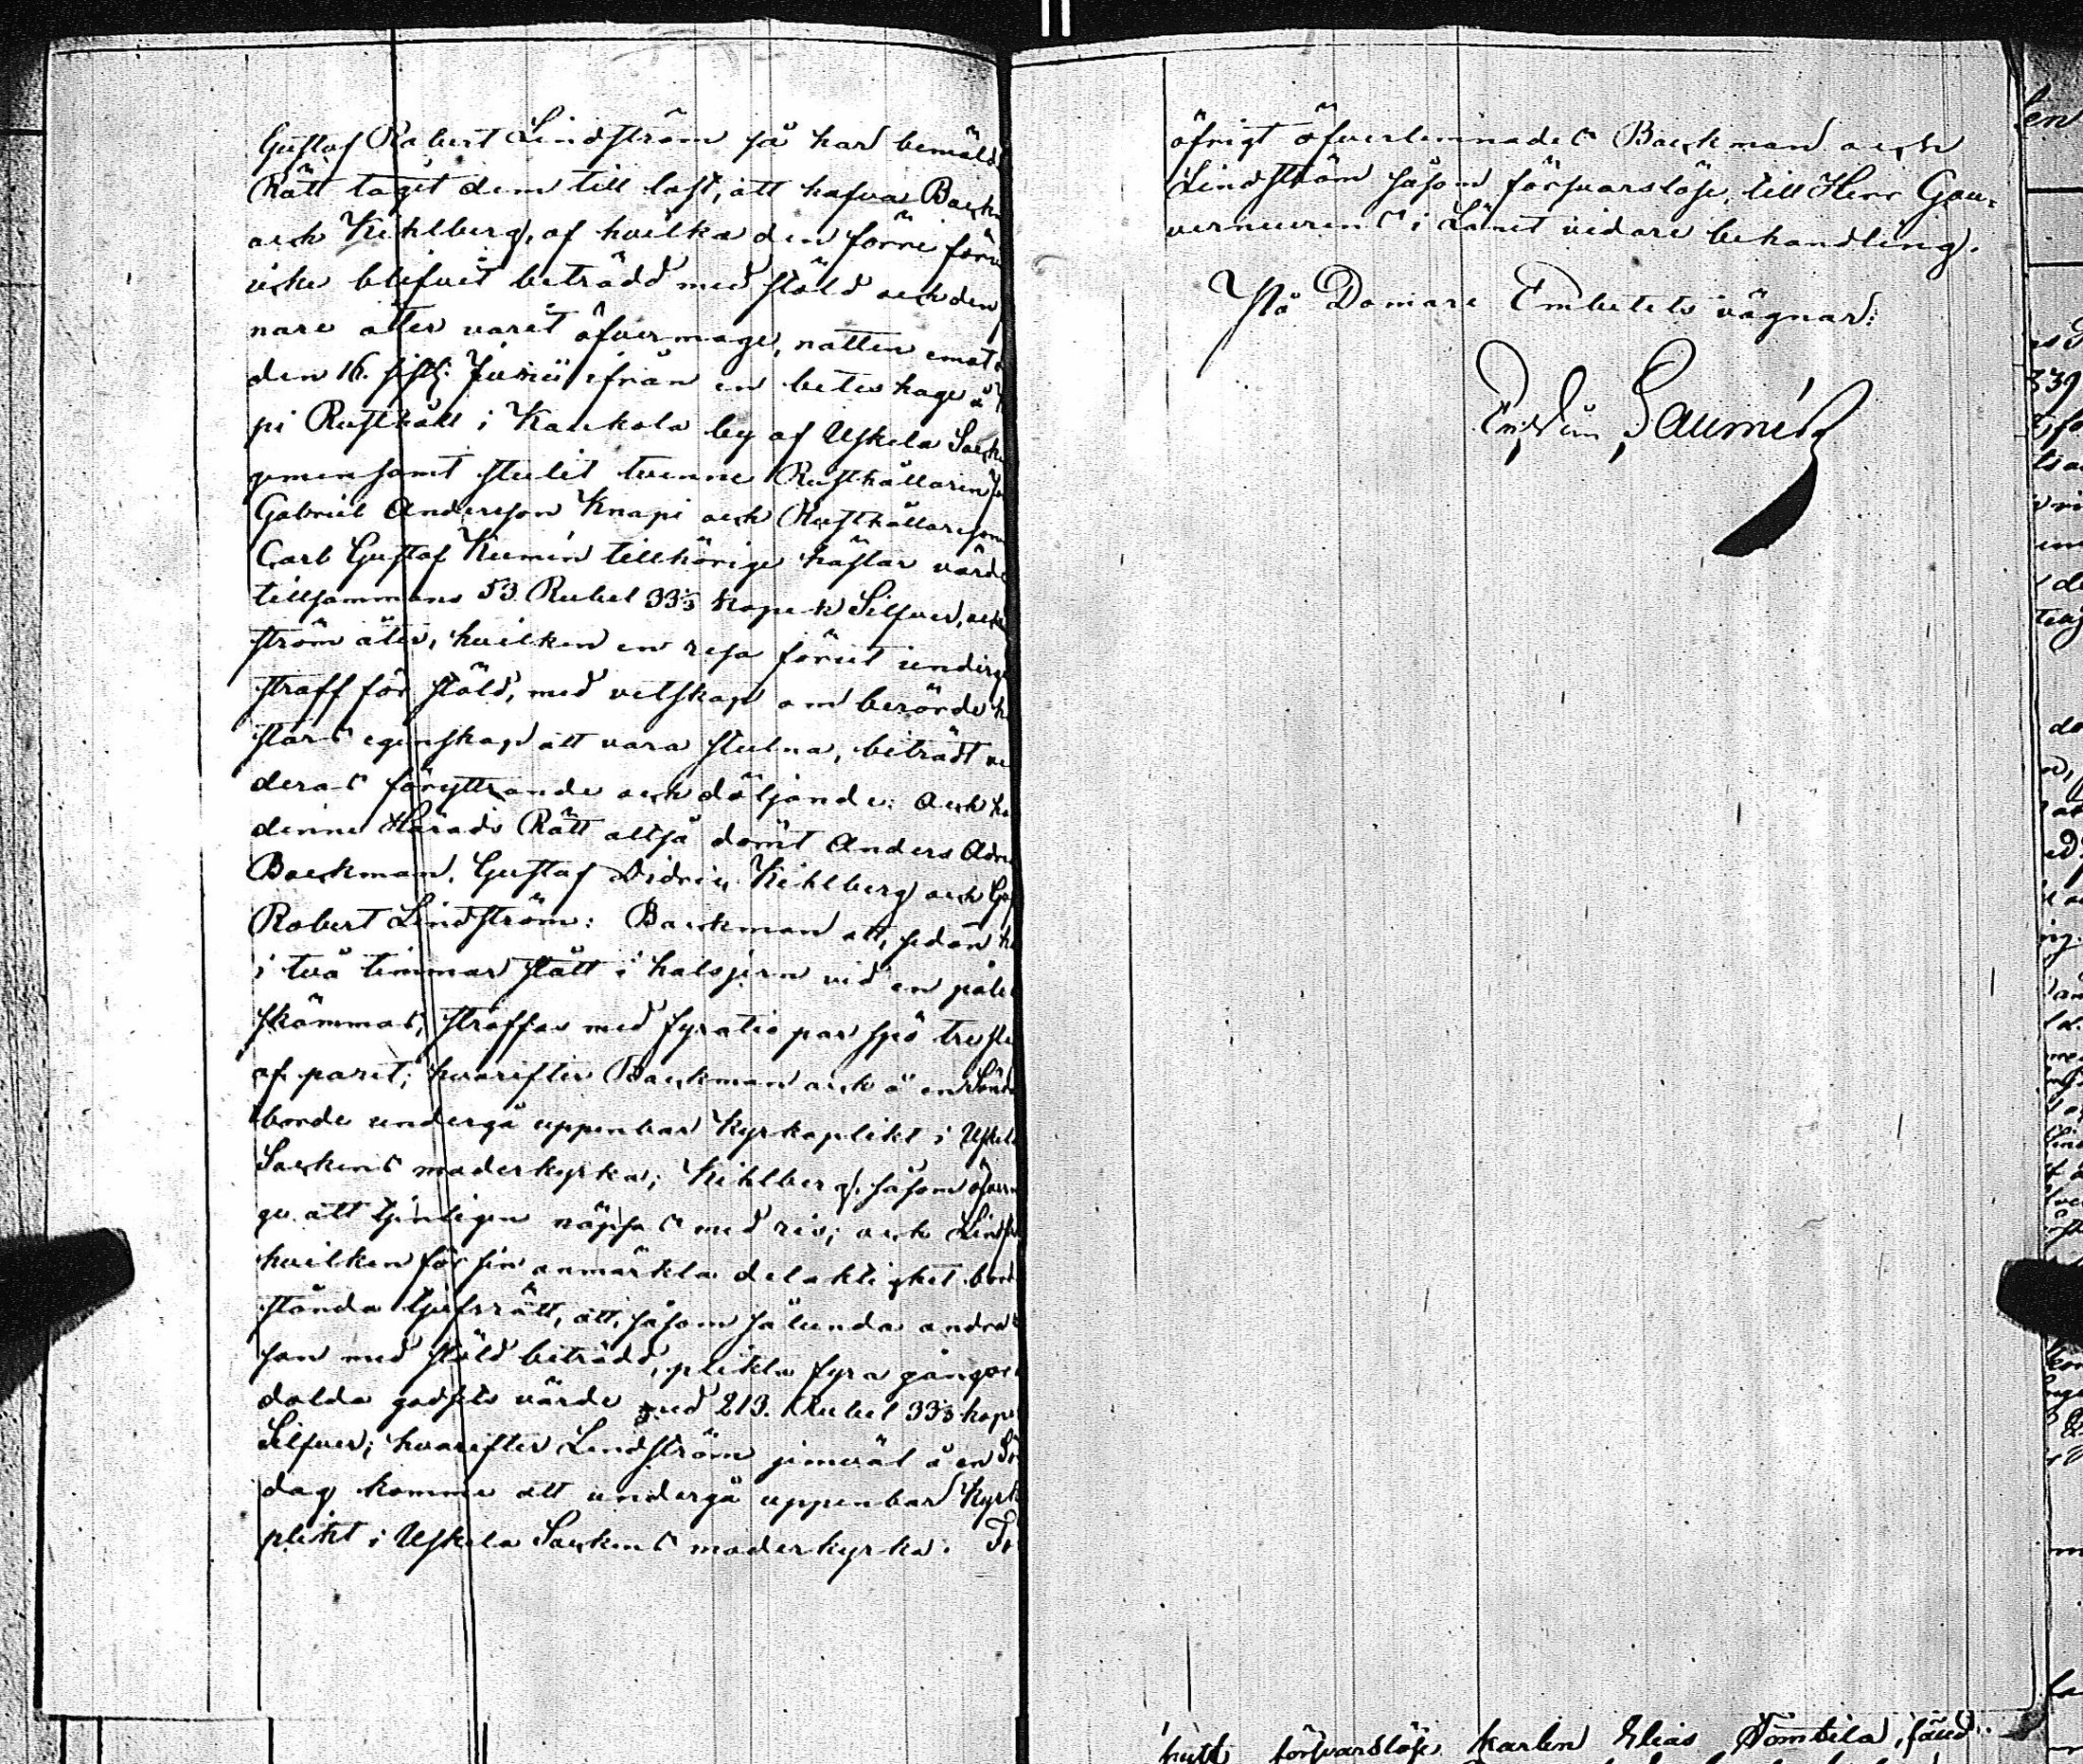 Gustaf Robert Lindström så har bemälde
Rätt tagit dem till last, att hafva Backm
och Kihlberg, af hvilka den förre förut
icke blifvit beträdd med stöld och den
nare åter varit öfvermage, natten emot
den 16. sistl. Junii ifrån en betes hage å
pi Rusthåll i Kaukola by af Uskela Sock
gemensamt stulit tvenne Rusthållaren
Gabriel Andersson Knapi och Rusthållaresonen
Carl Gustaf Kumin tillhörige hästar värde
tillsammans 53 Rubel 33⅓ kopek Silfver, och
ström åter, hvilken en resa förut underg
straff för stöld, med vetskap om berörde hä
stars egenskap att vara stulna, biträdt vi
deras föryttrande och döljande: och ha
denne Härads Rätt altså dömt Anders Adri
Backman, Gustaf Didric Kihlberg och Gus
Robert Lindström: Backman att, sedan ha
i två timmar stått i halsjern vid en påle
skämmas, straffas med fyratio par spö tre sla
af paret; hvarefter Backman och å en Sönda
borde undergå uppenbar Kyrkoplikt i Uskela
Sockens moderkyrka; Kihlberg, såsom öfverm
ge att tjenligen näpsas med ris; och Lindst
hvilken för sin anmärkta delaktighet bord
stånda tjufsrätt, att, såsom sålunda andra
son med stöld beträdd, plikta fyra gånger
dolda godsets värde med 213. Rubel 33⅓ kop
Silfver; hvarefter Lindström jemväl å en Sö
dag komme att undergå uppenbar Kyrk
plikt i Uskela Sockens moderkyrka. I
öfrigt öfverlemnades Backman och
Lindström såsom försvarslöse, till Herr Gou=
verneurens i Länet vidare behandling.
På Domare Embetets vägnar:
huts försvarslöse karlen Elias Tomtila, född